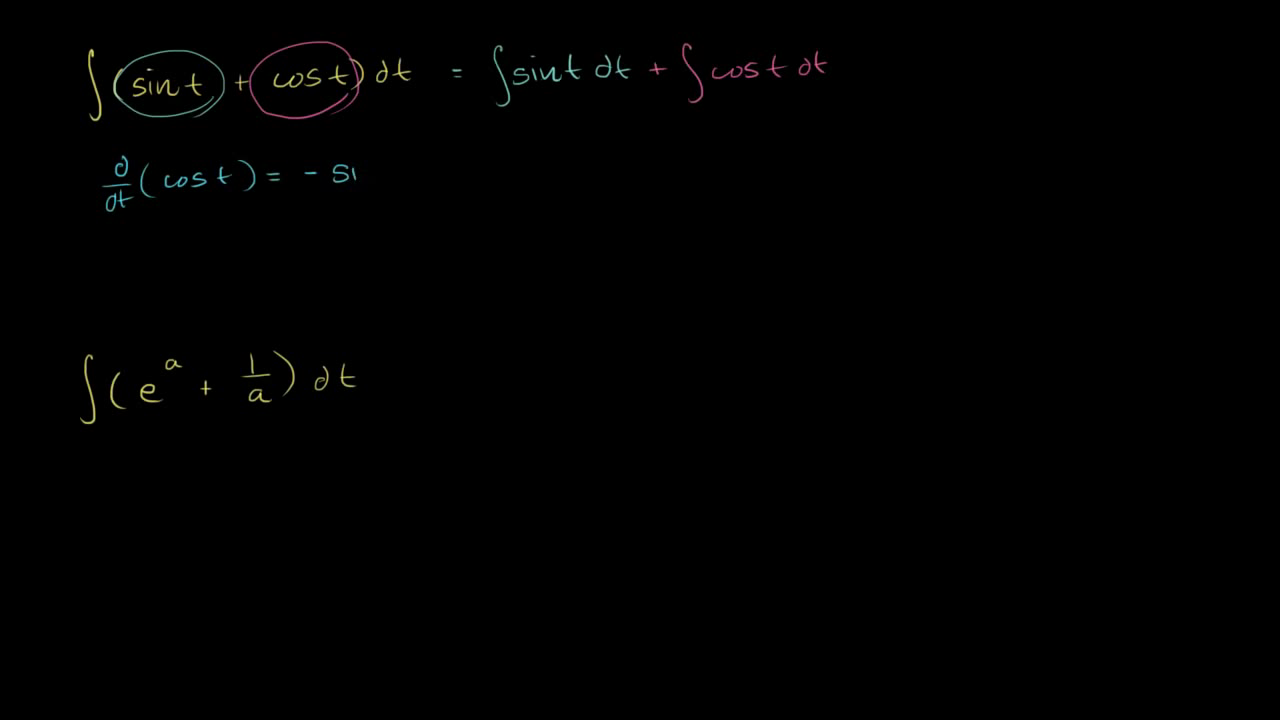 ∫(sin t + cos t) dt = ∫sin t dt + ∫cos t dt
d/dt (cos t) = - si
∫(e^a + 1/a) dt